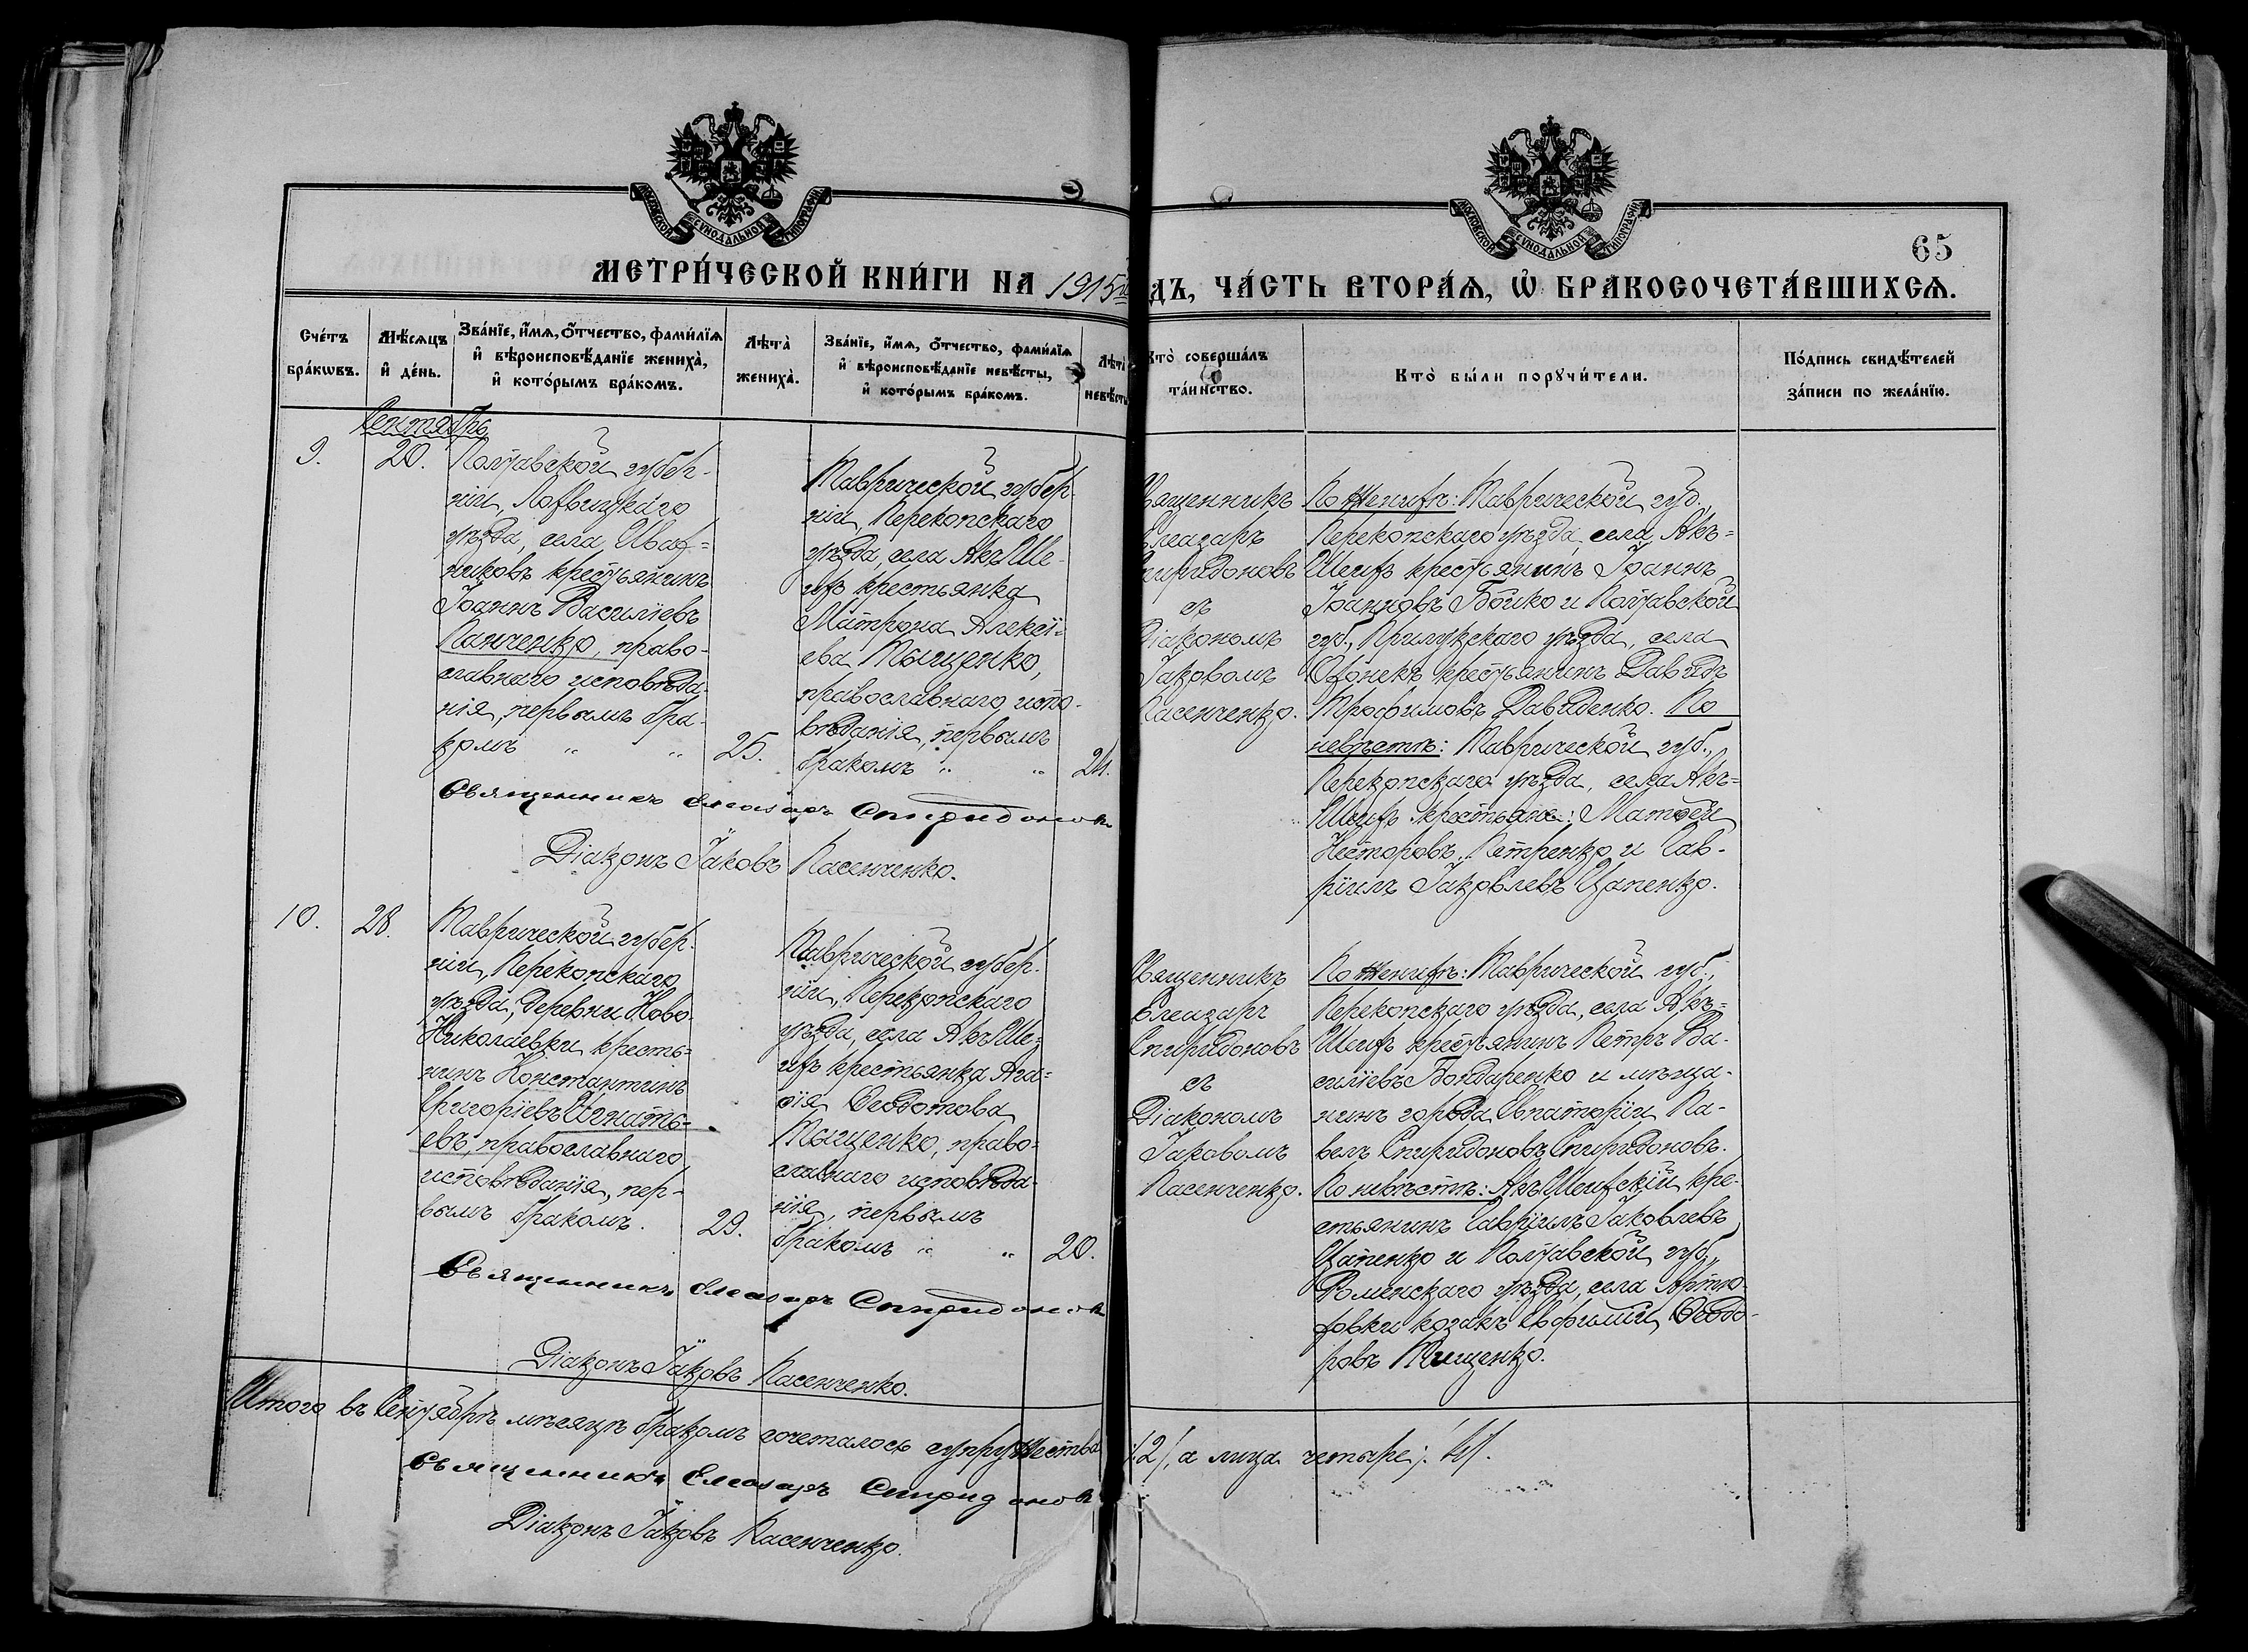 МОСКОВСКОЙ СѴНОДАЛЬНОЙ ТИПОГРАФІИ
МОСКОВСКОЙ СѴНОДАЛЬНОЙ ТИПОГРАФІИ
65
МЕТРИ́ЧЕСКОЙ КНИ́ГИ НА 1915
ДЪ, ЧА́СТЬ ВТОРА́Ѧ, Ѡ҆ БРАКОСОЧЕТА́ВШИХСѦ.
Сче́тъ
бра́кѡвъ.
Мѣ́сѧцъ
и҆ де́нь.
Зва́нїе, и҆́мѧ, ѻ҆́тчество, фами́лїѧ
и҆ вѣроисповѣ́данїе жениха̀,
и҆ кото́рымъ бра́комъ.
Лѣта̀
жениха̀.
Зва́нїе, и҆́мѧ, ѻ҆́тчество, фами́лїѧ
и҆ вѣроисповѣ́данїе невѣ́сты,
и҆ кото́рымъ бра́комъ.
Лѣта̀
невѣ́ст
Кто̀ соверша́лъ
та́инство.
Кто̀ бы́ли порꙋчи́тели.
По́дпись свидѣ́телей
за́писи по жела́нїю.
Сентябрь
9.
20.
Полтавской губер-
ніи, Лохвицкаго
уѣзда, села Ивах=
никовъ крестьянинъ
Іоаннъ Василіевъ
Панченко, право-
славнаго исповѣда-
нія, первымъ бра-
комъ " "
25.
Таврической губер-
ніи, Перекопскаго
уѣзда, села Акъ Ше-
ихъ крестьянка
Матрона Алексі=
ева Тыщенко,
православнаго испо-
вѣданія, первымъ
бракомъ " "
24.
Священникъ
Елеазаръ
Спиридоновъ
съ
Діакономъ
Іаковомъ
Пасенченко.
По женихѣ: Таврической губ.,
Перекопскаго уѣзда, села Акъ=
Шеихъ крестьянинъ Іоаннъ
Іоанновъ Бойко и Полтавской
губ., Прилукскаго уѣзда, села
крестьянинъ Давидъ
Трофимовъ Давиденко. По
невѣстѣ: Таврической губ.,
Перекопскаго уѣзда, села Акъ=
Шеихъ крестьяне: Матѳей
Несторовъ Петренко и Гав-
ріилъ Іаковлевъ Цапенко.
Священникъ Елеазаръ Спиридоновъ
Діаконъ Іаковъ Пасенченко.
10.
28.
Таврической губер-
ніи, Перекопскаго
уѣзда, деревни Ново-
Николаевки крестья=
нинъ Константинъ
Григоріевъ Игнать=
евъ, православнаго
исповѣданія, пер-
вымъ бракомъ.
29.
Таврической губер-
ніи, Перекопскаго
уѣзда, села Акъ Ше-
ихъ крестьянка Ага=
ѳія Ѳеодотова
Тыщенко, право=
славнаго исповѣда-
нія, первымъ
бракомъ " "
20.
Священникъ
Елеазаръ
Спиридоновъ
съ
Діакономъ
Іаковомъ
Пасенченко.
По женихѣ: Таврической губ.,
Перекопскаго уѣзда, села Акъ=
Шеихъ крестьянинъ Петръ Ва-
силіевъ Бондаренко и мѣща-
нинъ города Евпаторіи Па-
велъ Спиридоновъ Спиридоновъ.
По невѣстѣ: Акъ Шеихскій кре-
стьянинъ Гавріилъ Іаковлевъ
Цапенко и Полтавской губ.,
Роменскаго уѣзда, села Артю-
ховки козакъ Евфимій Ѳеодо-
ровъ Тищенко.
Священникъ Елеазаръ Спиридоновъ
Діаконъ Іаковъ Пасенченко.
Итого въ Сентябрѣ мѣсяцѣ бракомъ сочеталось супружества /2/, а лица четыре: /4/.
Священникъ Елеазаръ Спиридоновъ
Діаконъ Іаковъ Пасенченко.